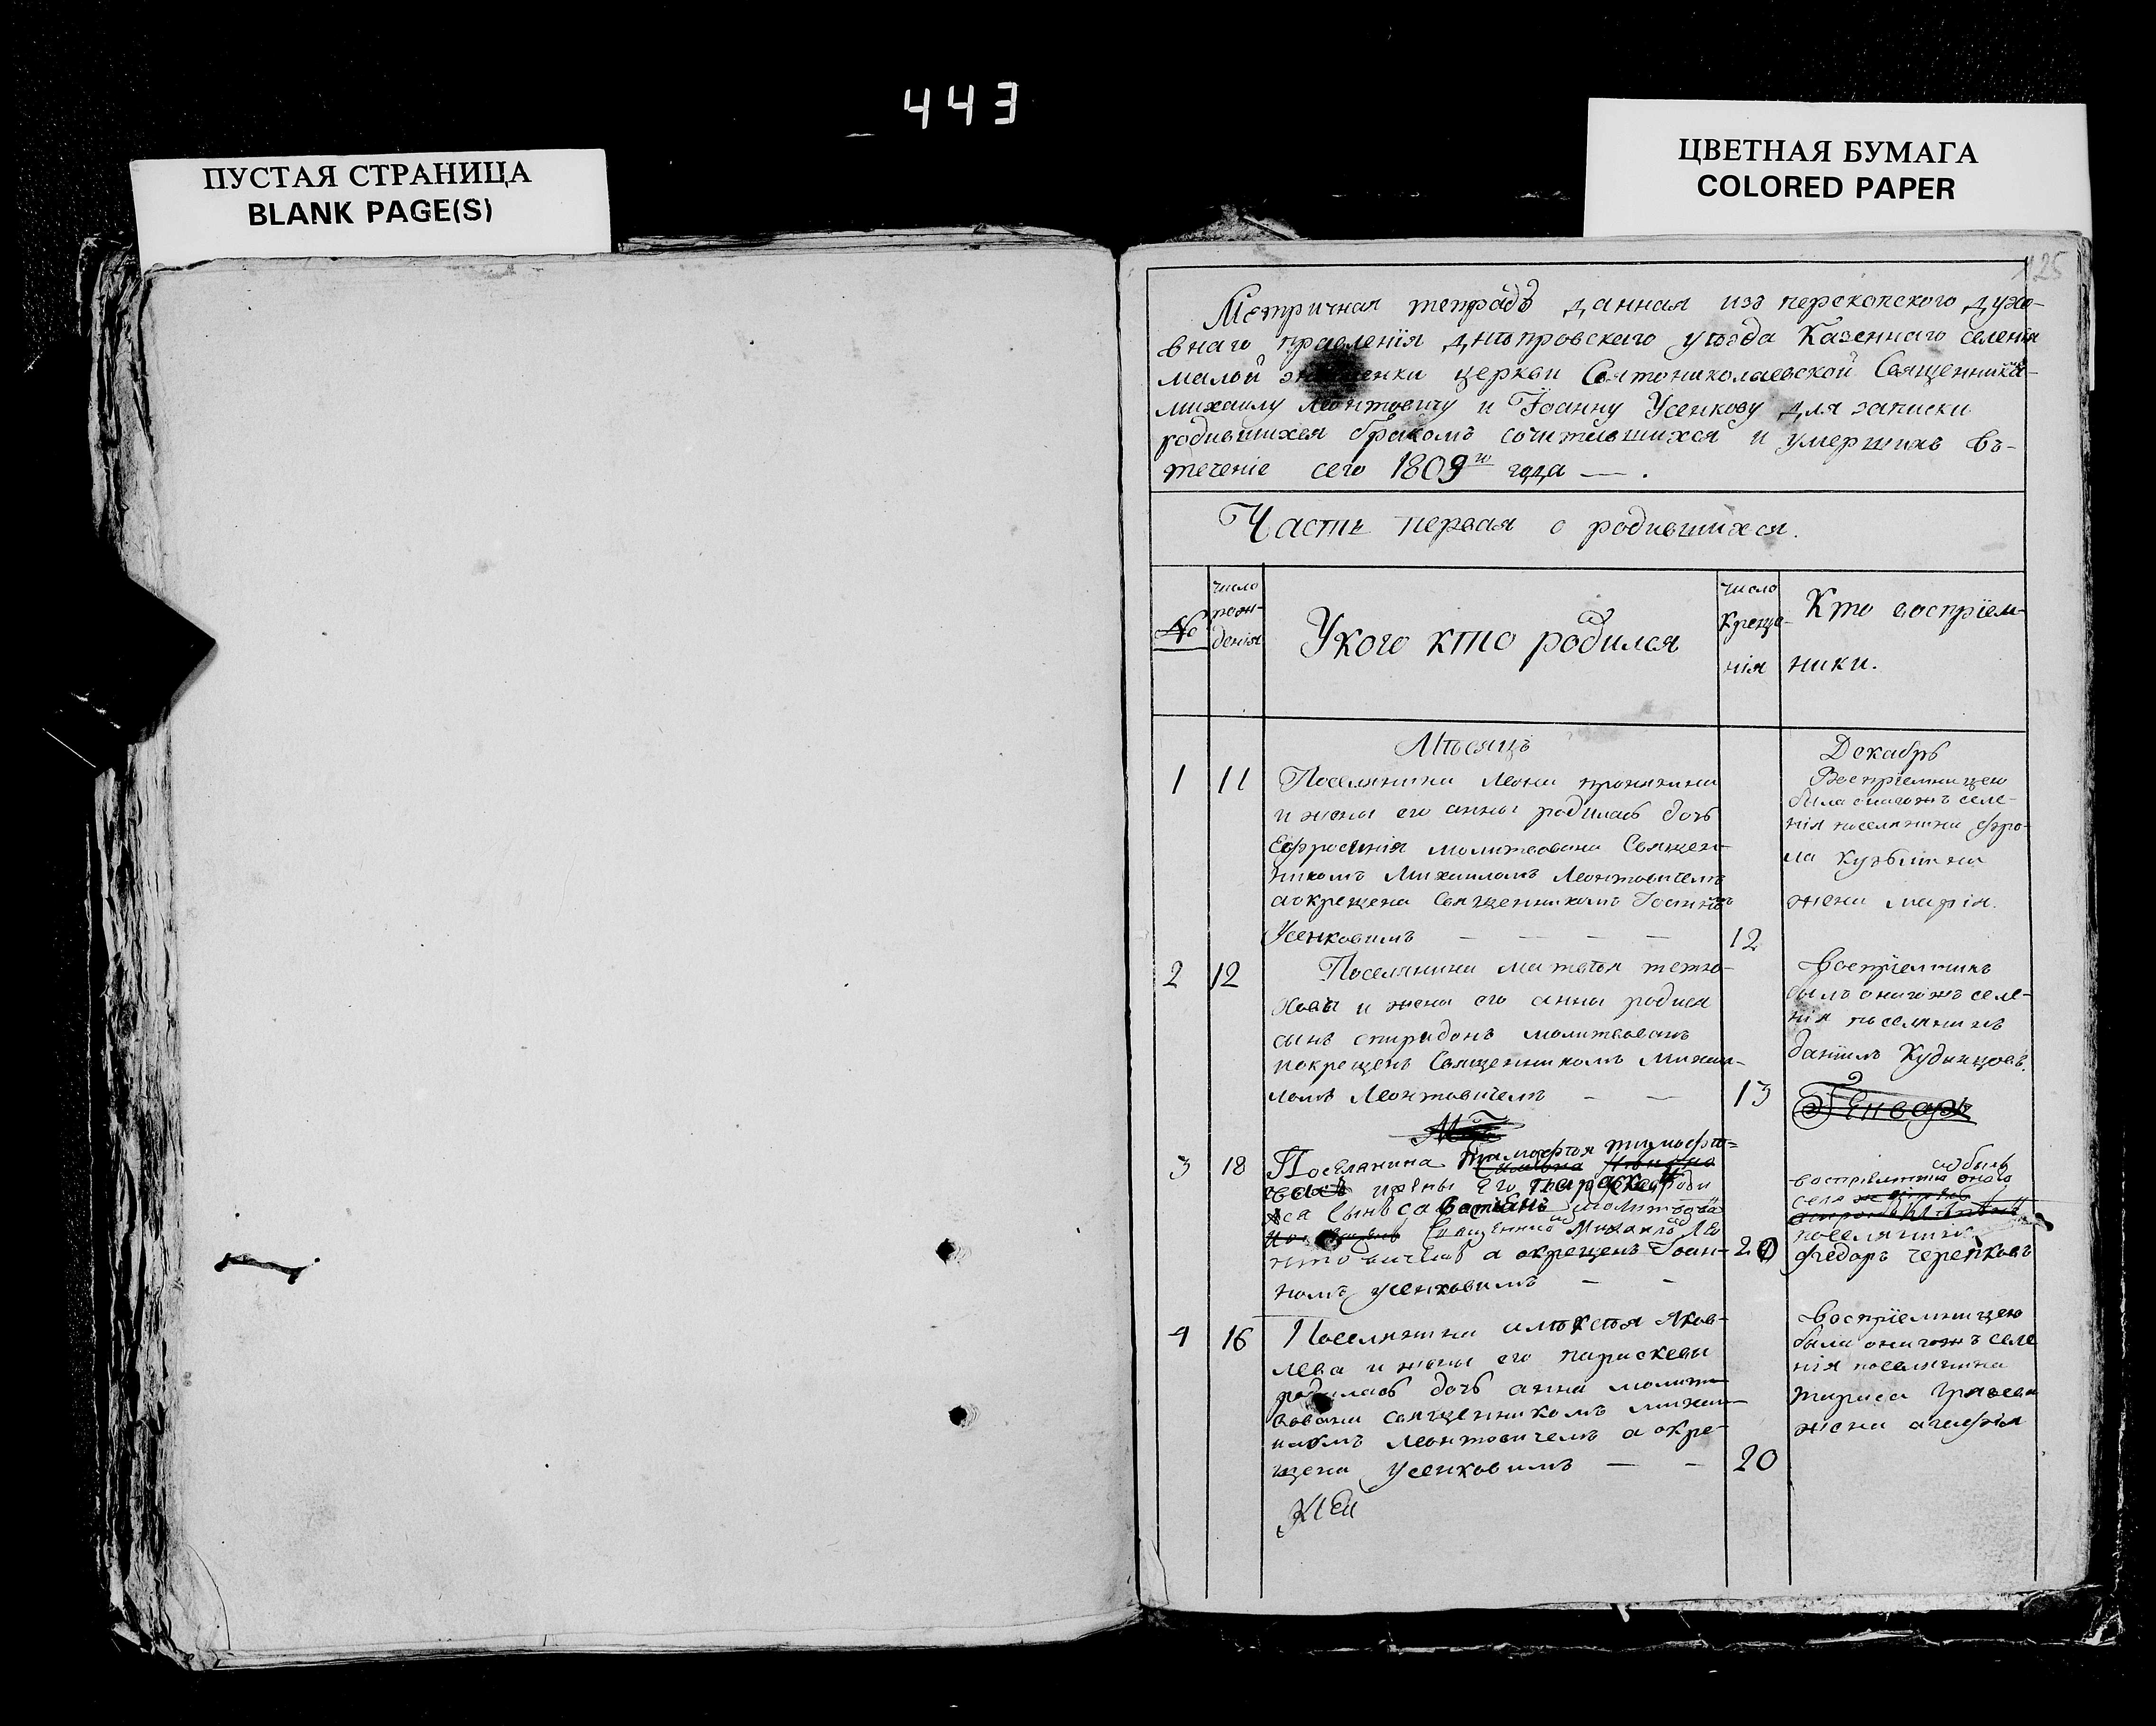 443
ПУСТАЯ СТРАНИЦА
BLANK PAGE(S)
ЦВЕТНАЯ БУМАГА
COLORED PAPER
125
Метричная тетрадь данная изъ перекопского духо-
внаго правленія днѣпровскаго уѣзда Казеннаго селенія
малой знаменки церкви Святониколаевской Священника-
михаилу Леонтовичу и Іоанну Усенкову для записки
родившихся бракомъ сочитавшихся и умершихъ въ-
теченіе сего 1809го года — .
Часть первая о родившихся.
№
число рож- денія
Укого кто родился
число Креще- нія
Кто воспріем-
ники.
Мѣсяцъ
Декабрь
1 11 Поселянина Леона
и жены его анны родилась дочь
Ефросинія молитвована Священ-
никомъ Михаиломъ Леонтовичемъ
аокрещена Священникомъ Іоанномъ
Усенковимъ — — — — 12
Воспріемницею
была оногожъ селе-
нія поселянина
ла Кузьмина
жена марія.
2 12 Поселянина матвѣя
и жены его анны родися
сынъ спиридонъ молитвованъ
иокрещенъ Священникомъ михаи-
ломъ Леонтовичемъ — — 13
Воспріемникъ
былъ оногожъ селе-
нія поселянинъ
даніилъ Кудинцовъ.
Генварь
3 18 Поселянина Тимофѣя тимофѣе-
ижены Его Параскевы роди
ся Сынъ молитвова
Священнико Михаилъ Ле
нтовичемъ а окрещенъ Іоан- 20
номъ усенковимъ — —
былъ
воспріемникъ оного
села
поселянинъ
федоръ черепковъ
4 16 Поселянина алѣксѣя Яков-
лева и жены его параскевы
родилась дочь анна молит-
вована священникомъ михаи-
ломъ Леонтовичемъ а окре-
щена усенковимъ — — 20
Воспріемницею
была оногожъ селе
нія поселянина
жена агафія